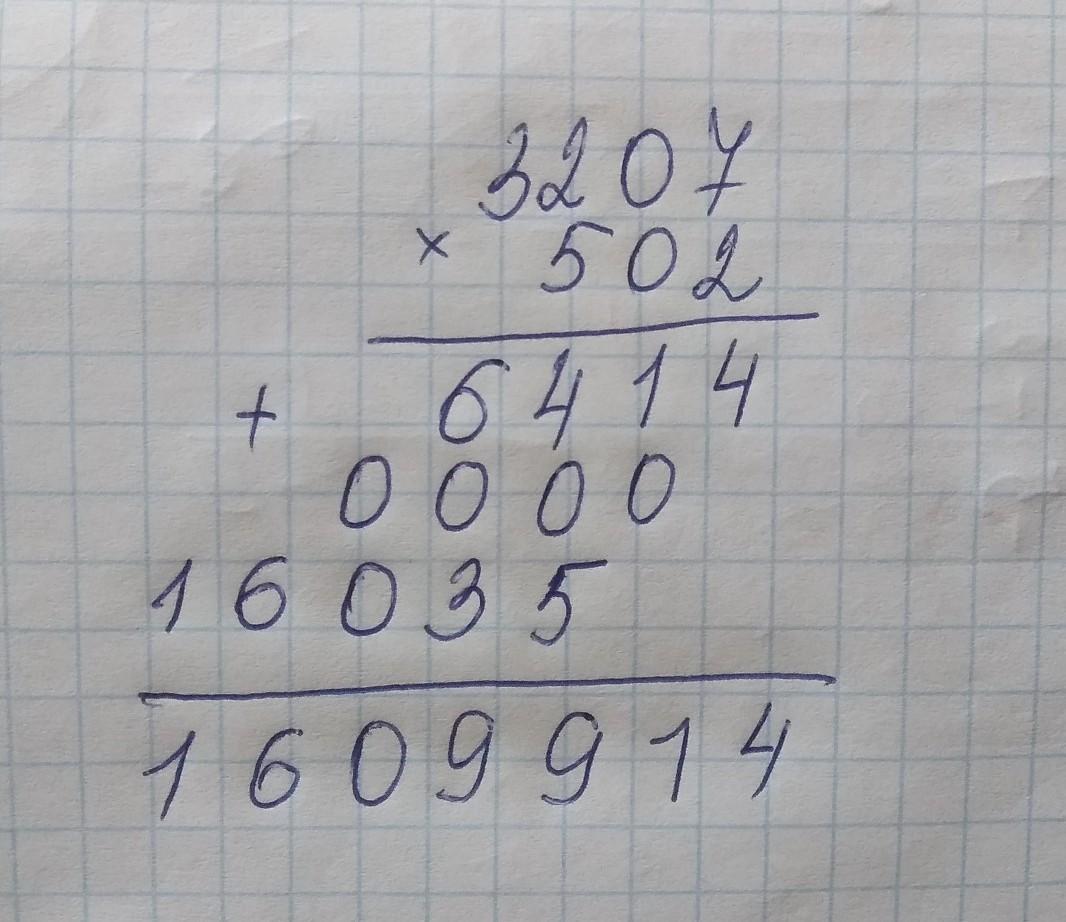 3207
× 502
+ 6414
0000
16035
1609914